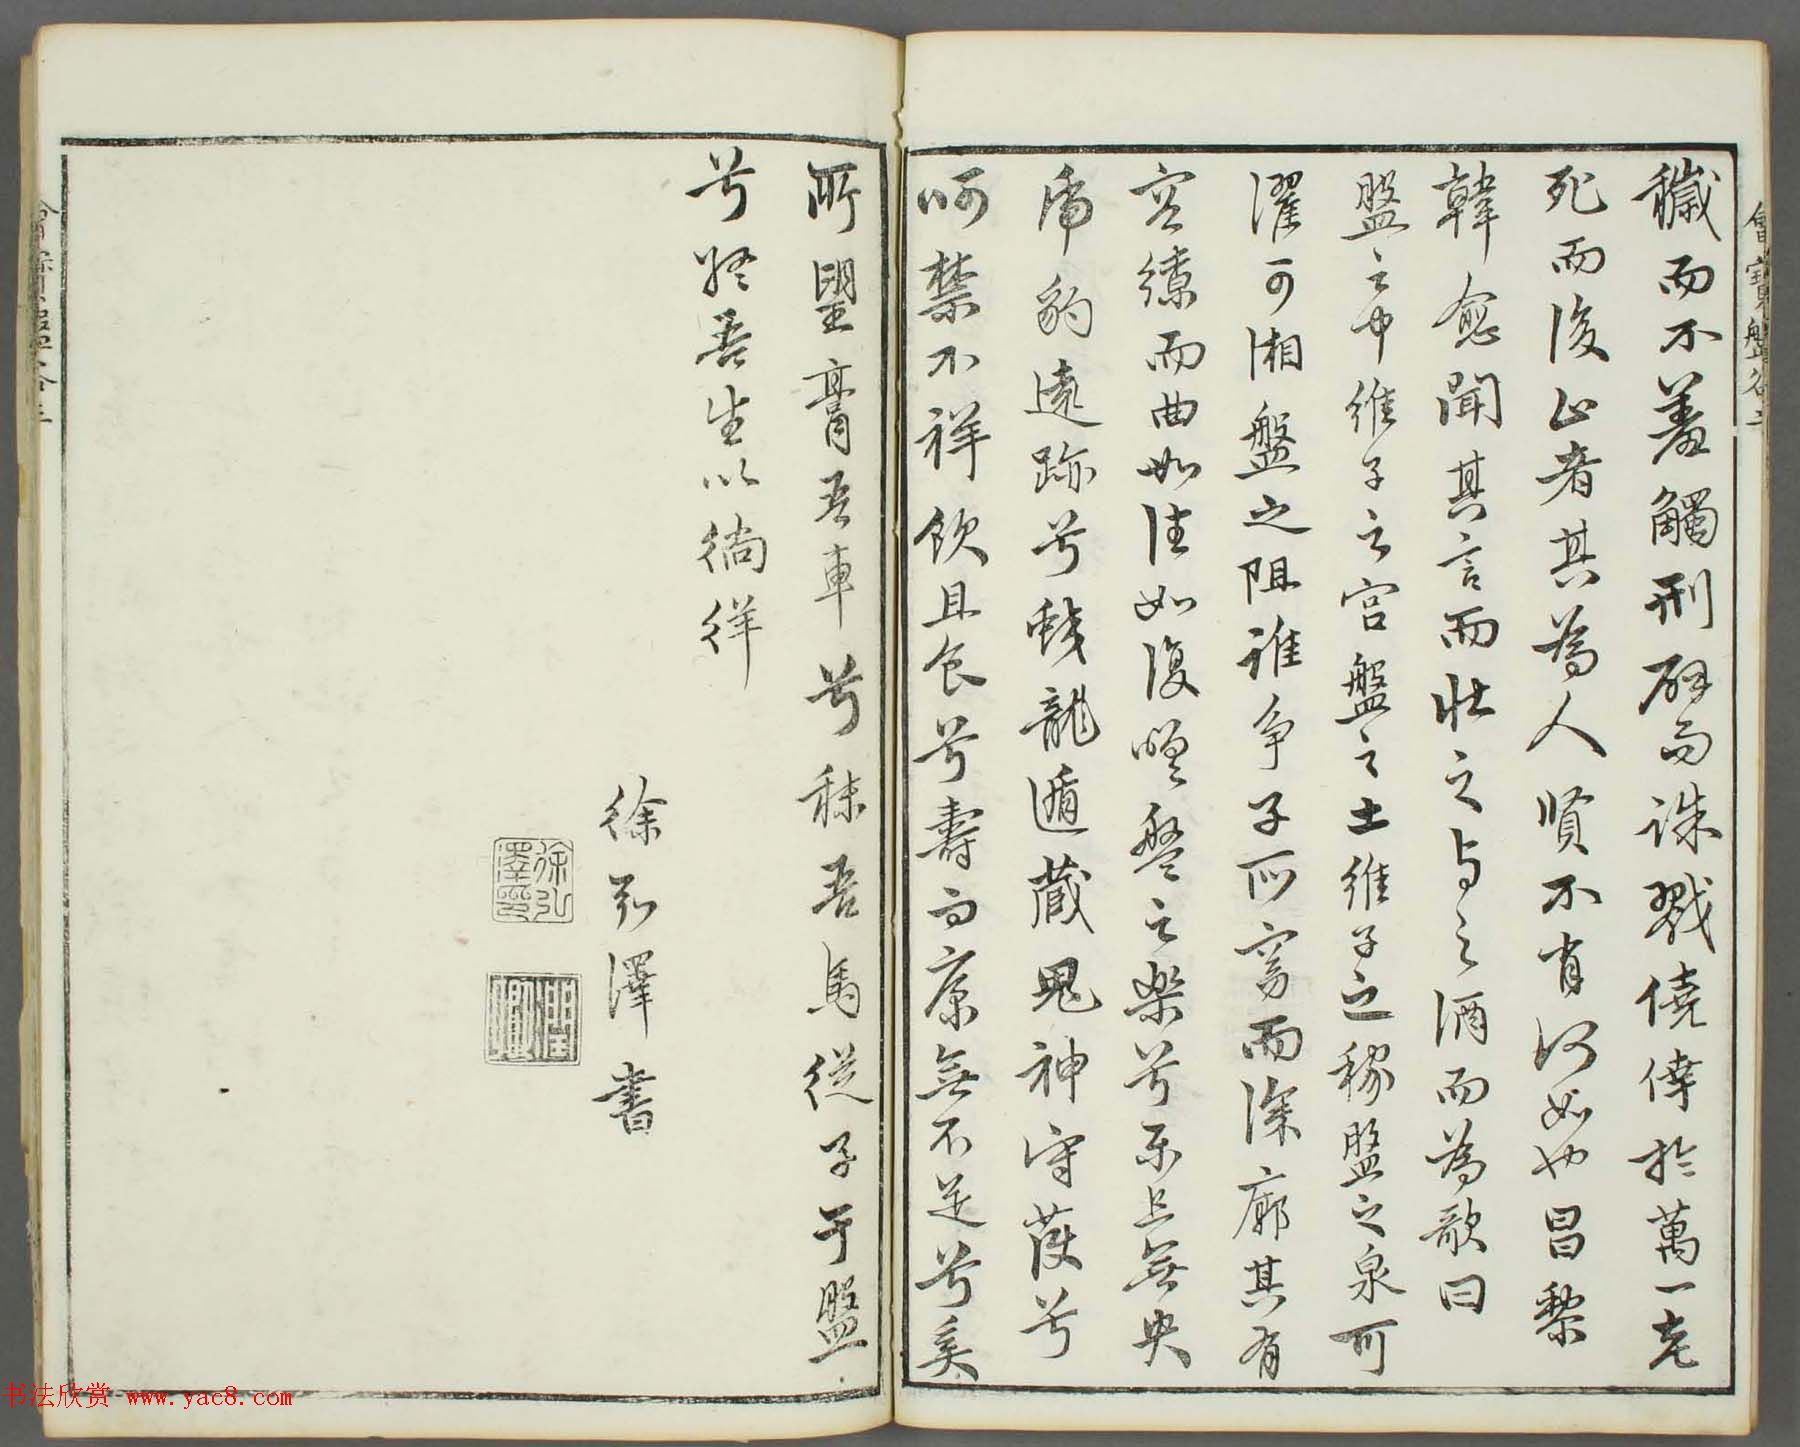 穢而不羞觸刑辟而誅戮僥倖於萬一老
死而後止者其為人賢不肖何如也昌黎
韓愈聞其言而壯之与之酒而為歌曰
盤之中維子之宮盤之土維子之稼盤之泉可
濯可湘盤之阻誰爭子所窈而深廓其有
容繚而曲如往如復嗟盤之樂兮樂且無央
虎豹遠跡兮蛟龍遁藏鬼神守護兮
呵禁不祥飲且食兮壽而康無不足兮奚
所望膏吾車兮秣吾馬從子于盤
兮終吾生以徜徉
徐弘澤書
徐弘澤印
盤谷二
书法欣赏 www.yac8.com